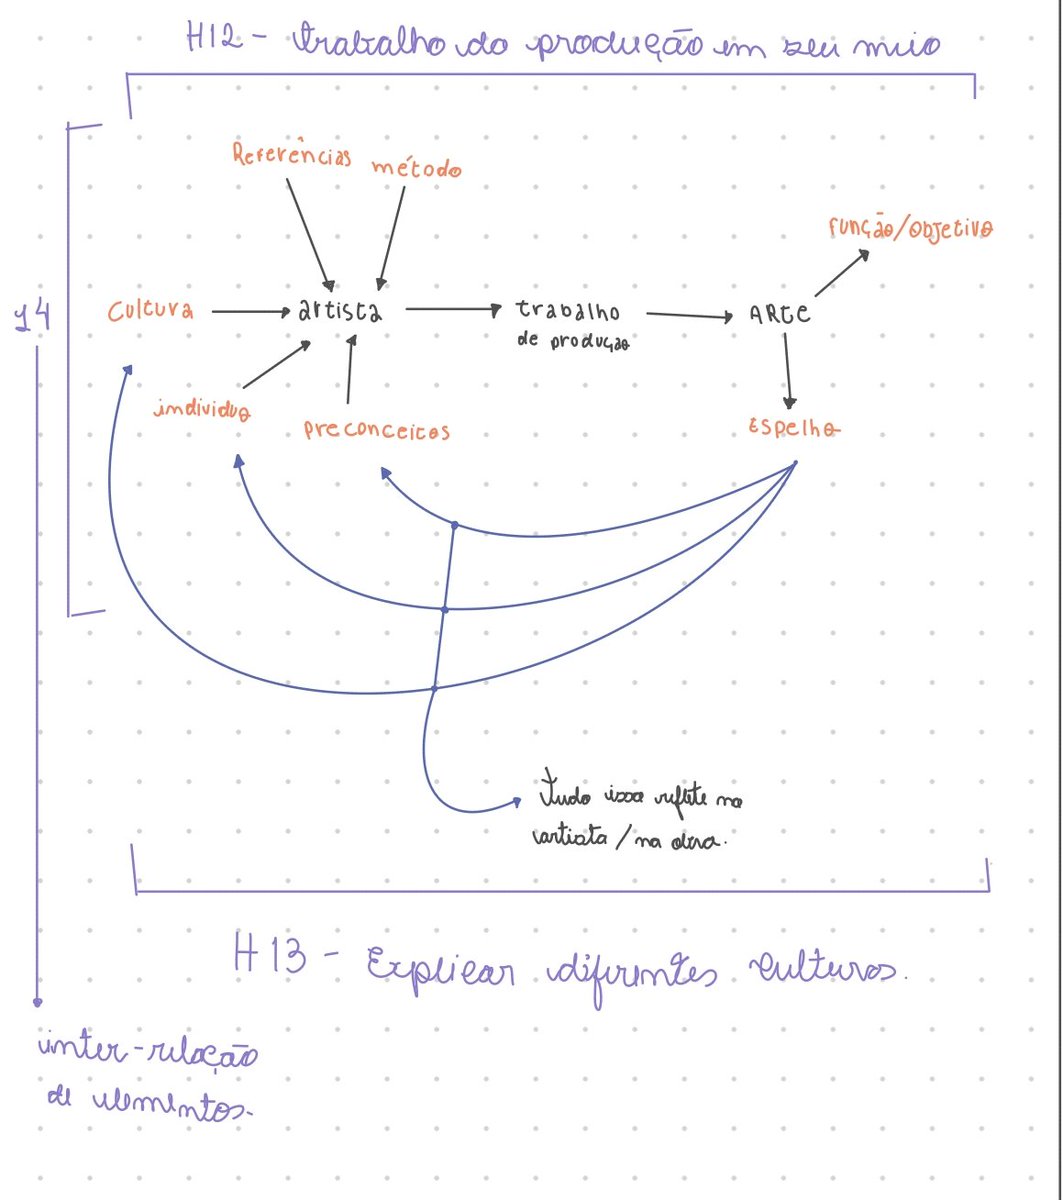 H12 - trabalho do produção em seu meio
Referências
método
função/objetivo
14
Cultura
artista
trabalho
de produção
ARte
individuo
preconceitos
Espelho
Tudo isso reflete no
artista / na obra.
H13 - Explicar diferentes culturas.
inter-relação
de elementos.